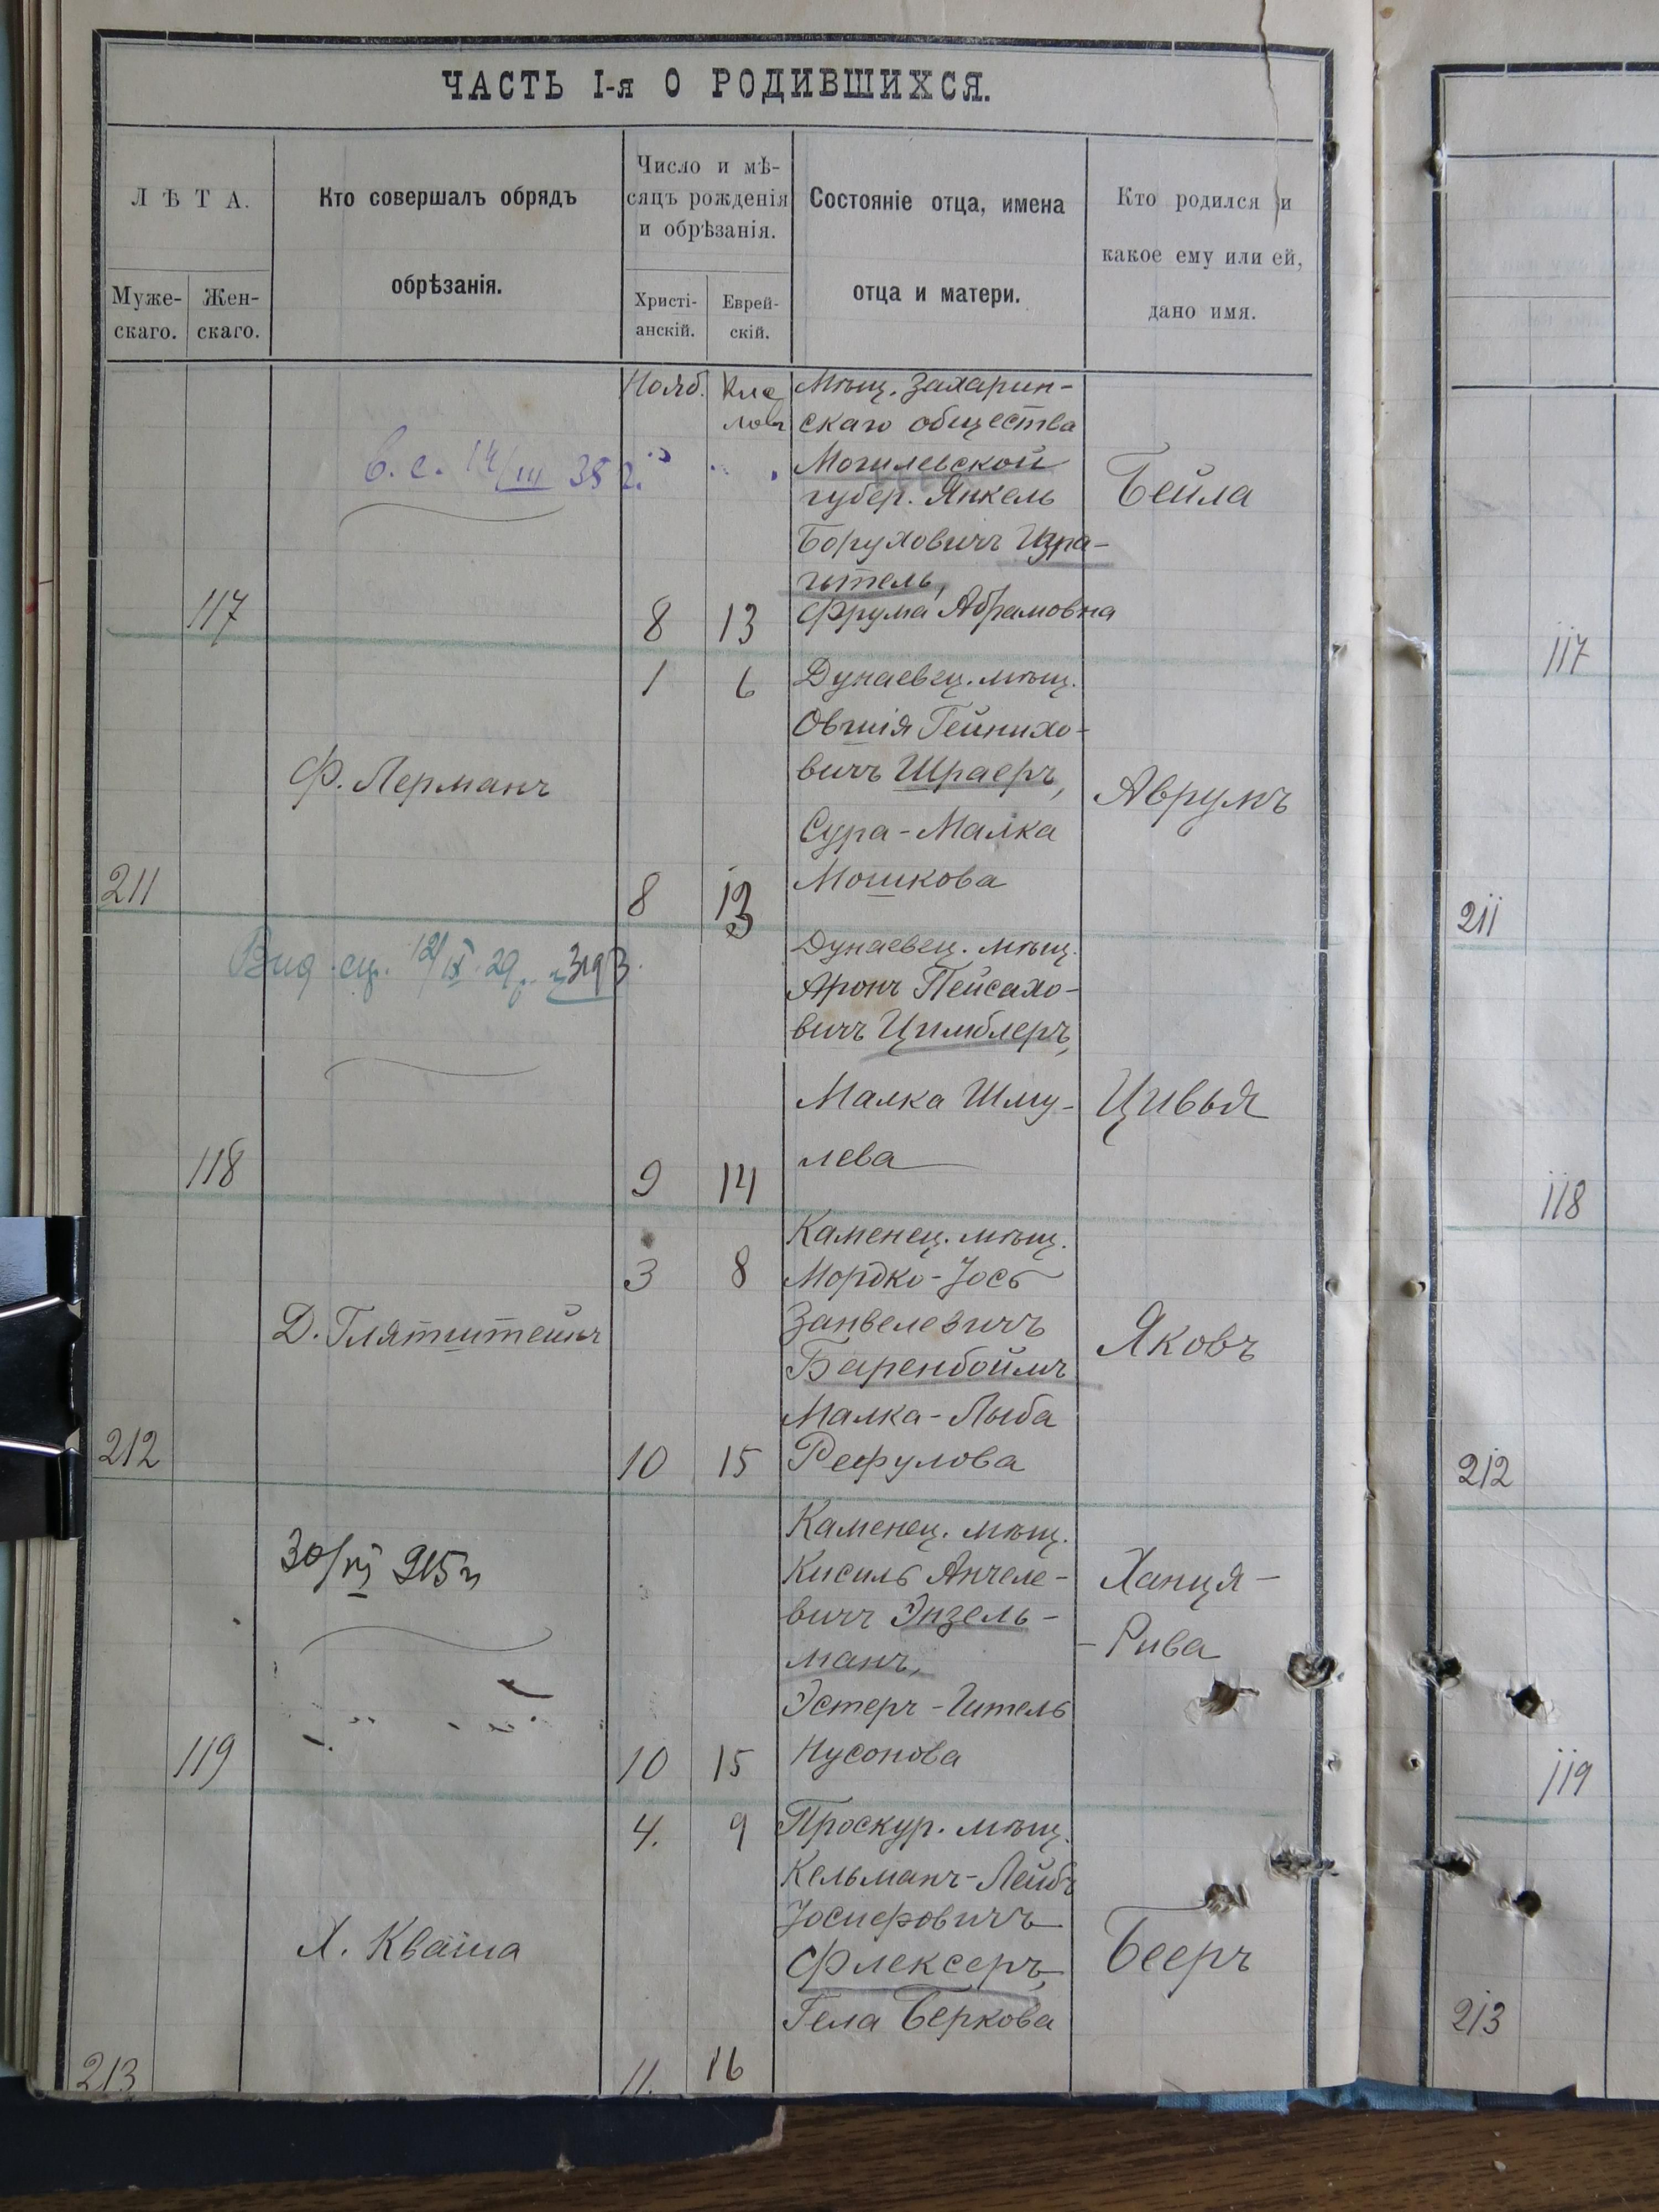 ЧАСТЬ I-я О РОДИВШИХСЯ.
ЛѢТА.
Муже-
скаго.
Жен-
скаго.
Кто совершалъ обрядъ
обрѣзанія.
Число и мѣ-
сяцъ рожденія
и обрѣзанія.
Христі-
анскій.
Еврей-
скій.
Состояніе отца, имена
отца и матери.
Кто родился и
какое ему или ей,
дано имя.
Нояб.
Кис
левъ
Мѣщ. Захарин-
скаго общества
Могилевской
губер. Янкель
Боруховичъ
Фрума Абрамовна
Бейла
в. с. 14/III 38 г.
117
8
13
117
1
6
Дунаевец. мѣщ.
Овшія Гейнихо-
вичъ Шраеръ,
Сура-Малка
Мошкова
Ф. Лерманъ
Аврумъ
211
8
13
211
Вид. 29 3193
Дунаевец. мѣщ.
Аронъ Пейсахо-
вичъ Цимблеръ,
Малка Шму-
лева
Цивья
118
9
14
118
Каменец. мѣщ.
3
8
Мордко-Іось
Занвелевичъ
Баренбоймъ
Малка-Лыба
Рефулова
Д. Глятштейнъ
Яковъ
212
10
15
212
Каменец. мѣщ.
Кисиль Анчеле-
вичъ Энзель-
манъ,
Эстеръ-Гитель
Нусонова
Ханця-
-Рива
119
10
15
119
4.
9
Проскур. мѣщ.
Кельманъ-Лейбъ
Іосифовичъ
Флексеръ,
Гела Беркова
Х. Кваша
Бееръ
213
11.
16
213